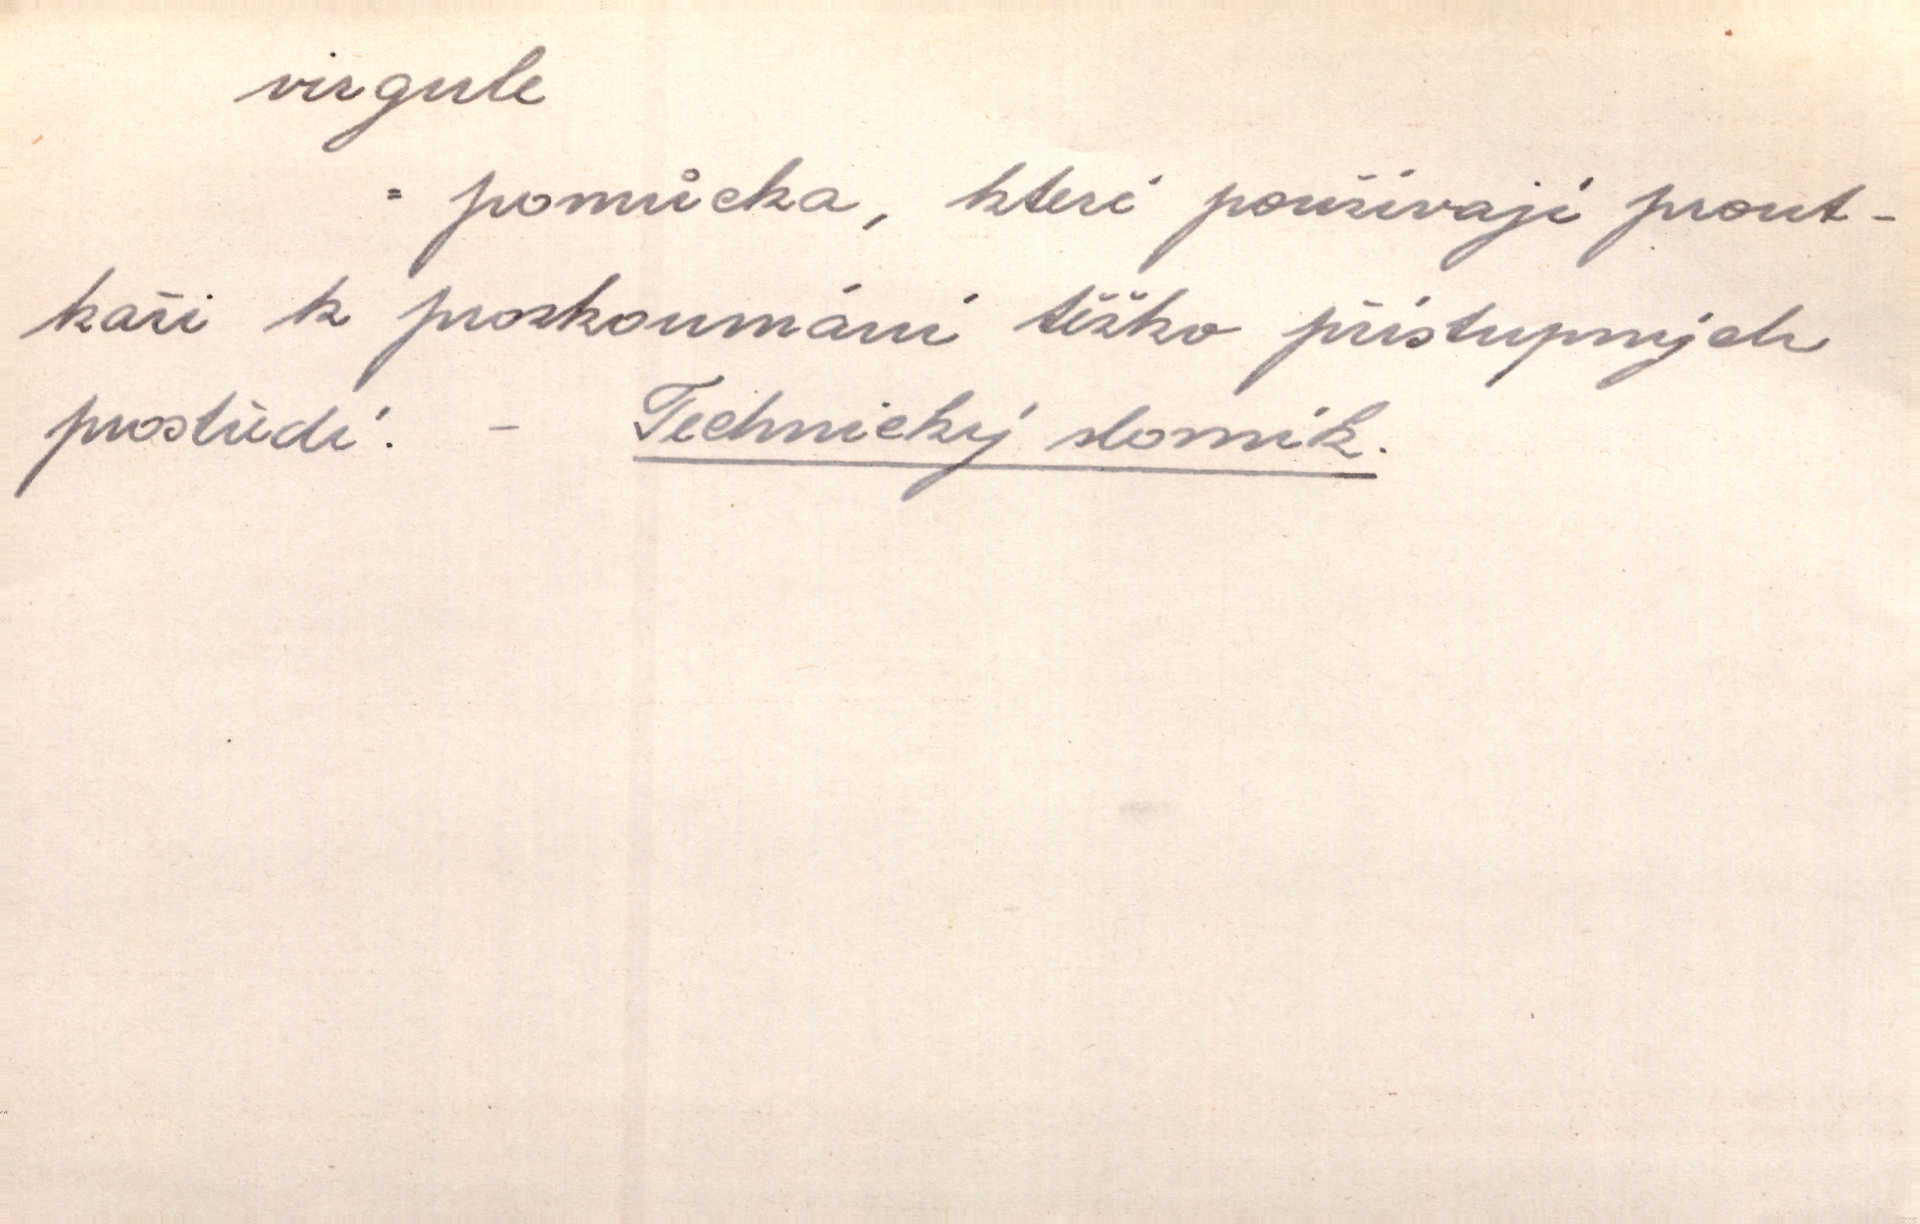 virgule
= pomůcka, které používají prout-
kaři k prozkoumání těžko přístupných
prostředí. - Technický slovník.